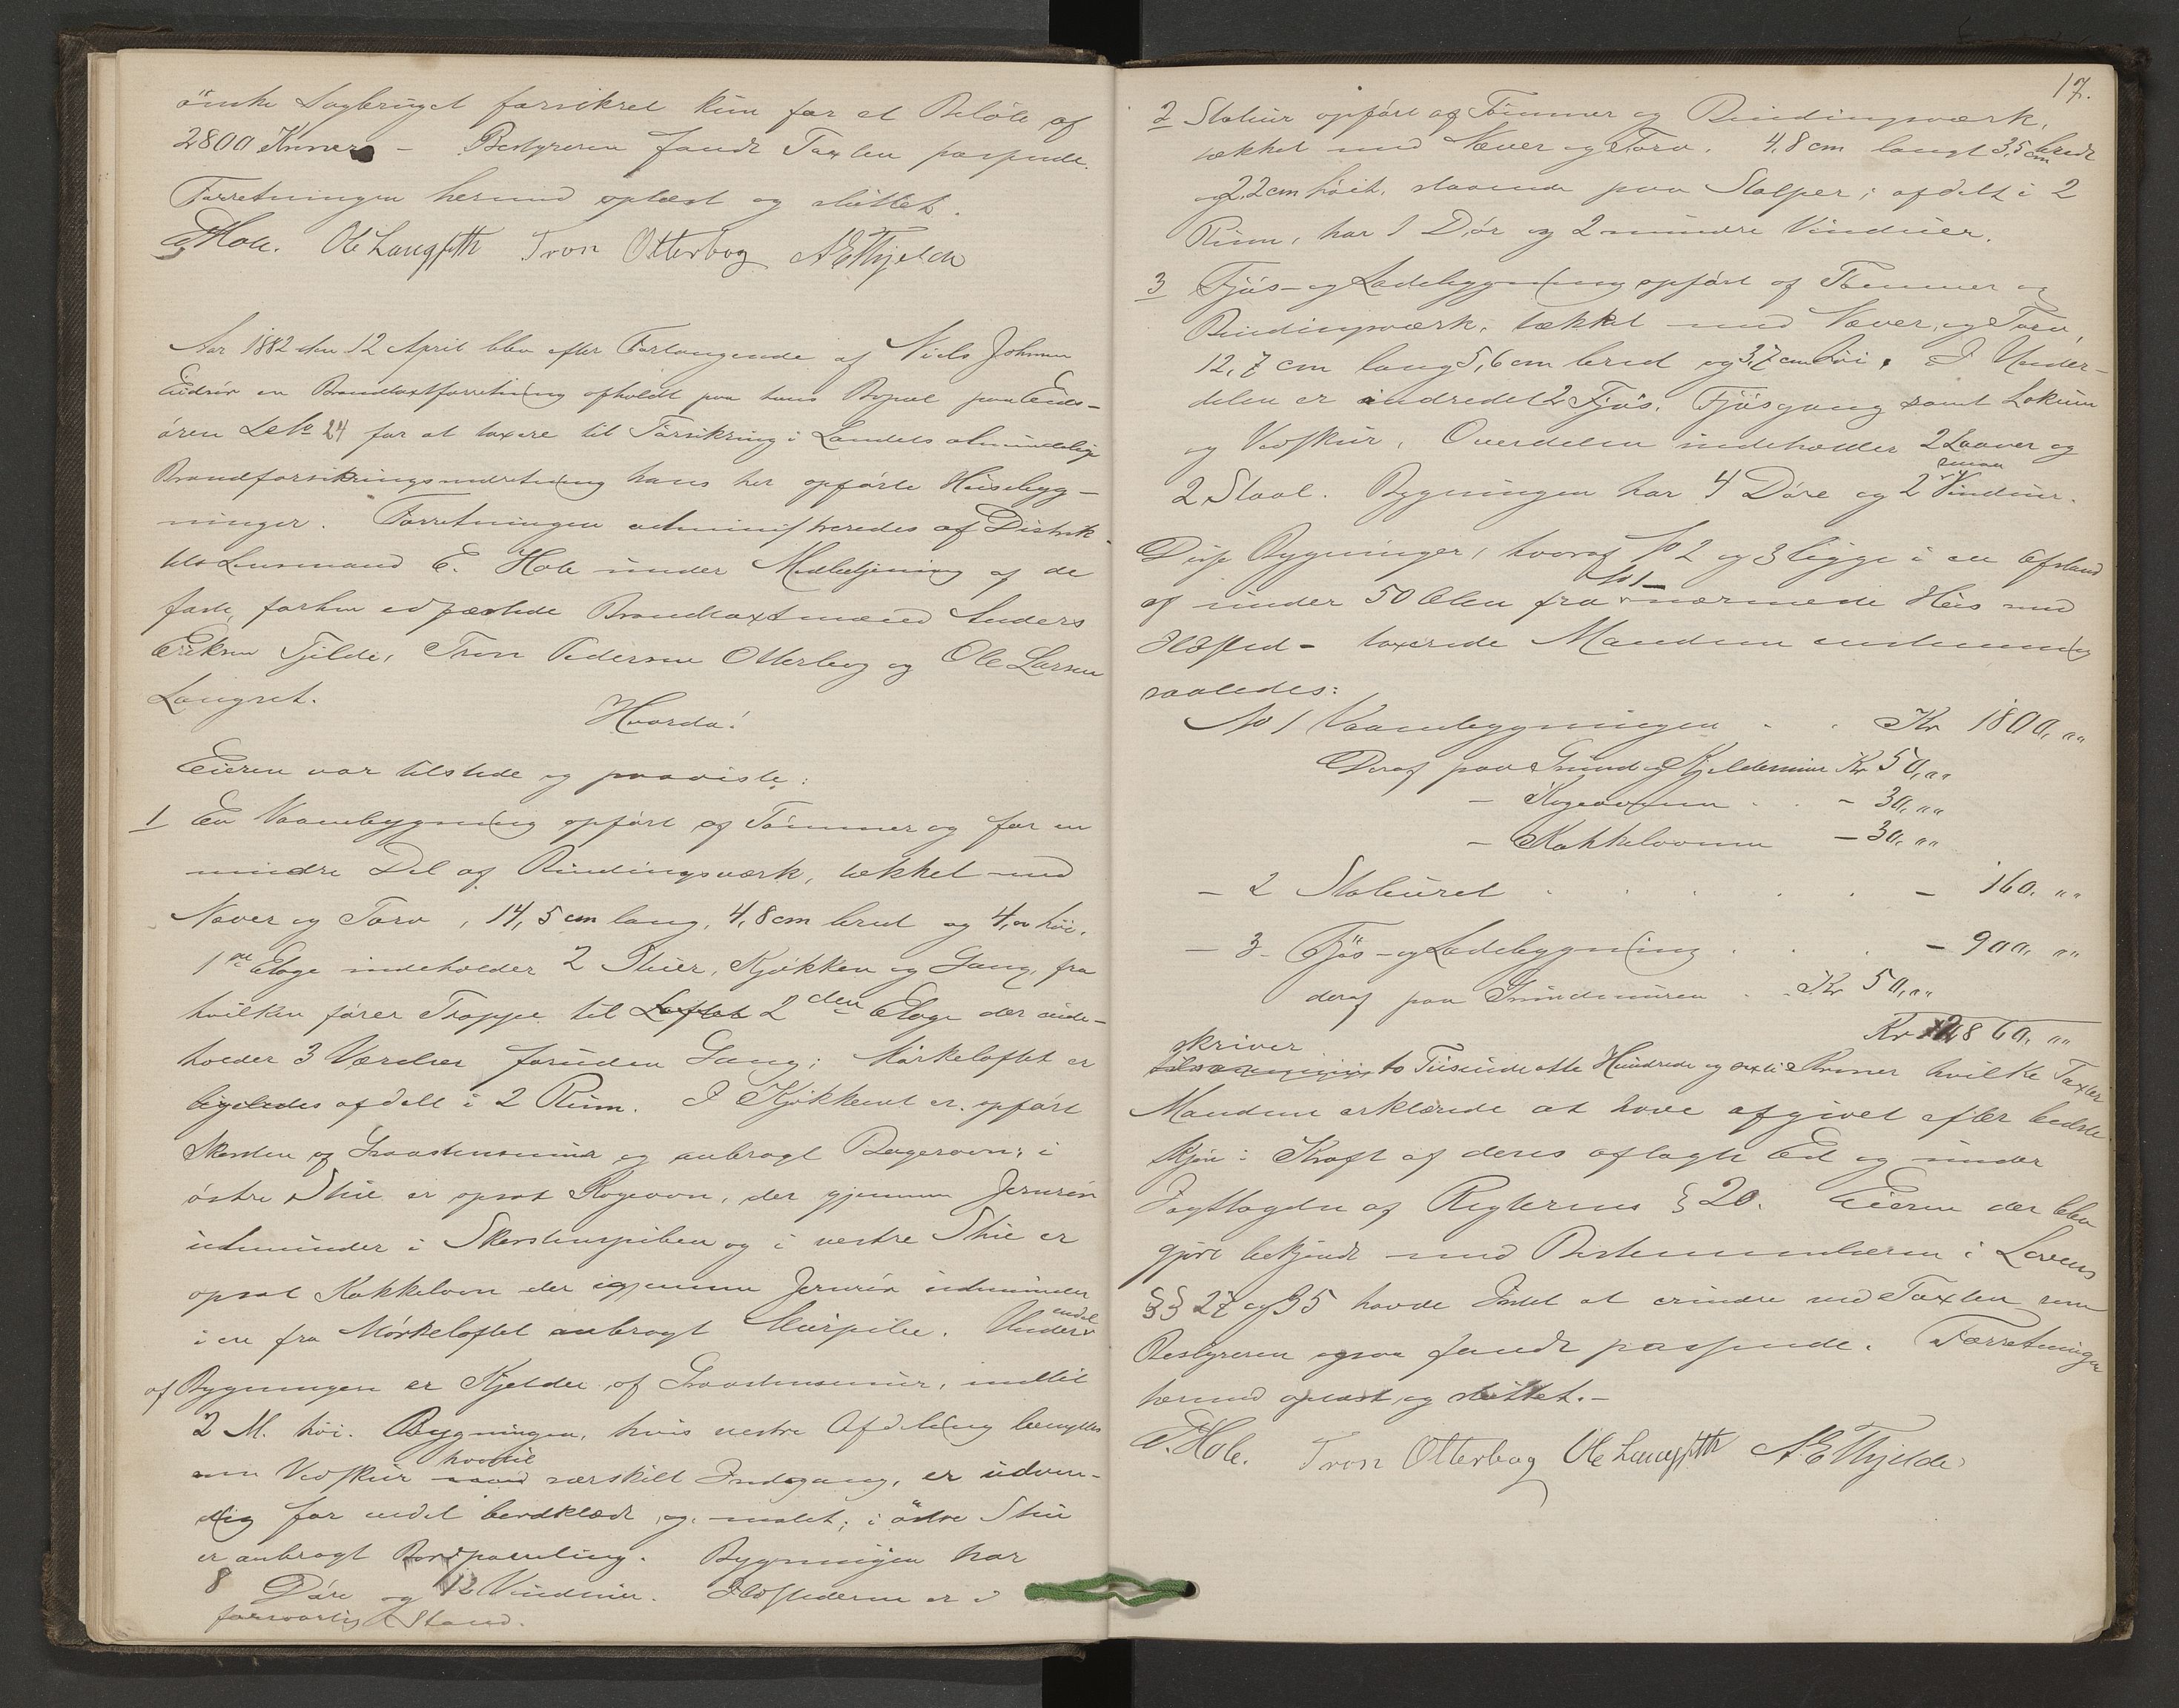 önske Sagbruget forsikret kun for et Beløb af
2800 Kroner – Bestyreren fandt Taxten passende.
Forretningen hermed oplæst og sluttet.
E Hole. Ole Langseth Tron Otterbog A E Thjelde
Aar 1882 den 12 April blev efter Forlangende af Niels Johnsen
Eidsør en Brandtaxtforretning afholdt paa hans Bopæl paa Eids-
øren LNo 24 for at taxere til Forsikring i Landets almindelige
Brandforsikringsindretning hans her opførte Huusebyg-
ninger. Forretningen administreredes af Distrik-
tets Lensmand E. Hole under Medbetjening af de
faste, forhen edfæstede Brandtaxtmænd Anders
Eriksen Tjelde, Tron Pedersen Otterbog og Ole Larsen
Langset.
Hvorda!
Eieren var tilstede og paaviste:
1 En Vaanebygning opført af Tømmer og for en
mindre Del af Bindingsværk, tækket med
Næver og Torv, 14,5 cm lang, 4,8 cm bred og 4,00 høi.
1ste Etage indeholder 2 Stuer, Kjøkken og Gang, fra
hvilken fører Trappe til Loftet 2den Etage der inde-
holder 3 Værelser foruden Gang; Mørkeloftet er
ligeledes afdelt i 2 Rum. I Kjøkkenet er opført
Skorsten af Graastensmur og anbragt Bagerovn; i
østre Stue er opsat Kogeovn, der gjennem Jernrør
udmunder i Skorstenspiben og i vestre Stue er
opsat Kakkelovn der igjennem Jernrør udmunder
i en fra Mørkeloftet anbragt Murpibe. Under endel
af Bygningen er Kjelder af Graastensmur, indtil
2 M. høi. Bygningen, hvis vestre Afdeling benyttes
som Vedskur hvortil særskilt Indgang, er udven-
dig for endel bordklædt og malet; i østre Stue
er anbragt Bordpaneling. Bygningen har
8 Døre og 12 Vinduer. Ildstederne er i
forsvarlig Stand.
17.
2 Stabur opført af Tømmer og Bindingsværk,
tækket med Næver og Torv. 4,8 cm langt 3,5 cm bredt
og 2,2 cm høit, staaende paa Stolper; afdelt i 2
Rum, har 1 Dør og 2 mindre Vinduer.
3 Fjøs- og Ladebygning opført af Tømmer og
Bindingsværk, tækket med Næver og Torv,
12,7 cm lang 5,6 cm bred og 3,7 cm høi. I Under-
delen er indredet 2 Fjøs, Fjøsgang samt Lokum
og Vedskur. Overdelen indeholder 2 Laaver og
2 Staal. Bygningen har 4 Døre og 2 smaa Vinduer.
Disse Bygninger, hvoraf No 2 og 3 ligge i en Afstand
af under 50 Alen fra No 1 – nærmeste Hus med
Ildsted – taxerede Mændene enstemmig
saaledes:
No 1 Vaanebygningen Kr 1800, „„
Deraf paa Grund og Kjeldermur Kr 50, „„
– Kogeovnen – 30, „„
– Kakkelovnen – 30, „„
– 2 Staburet – 160. „„
– 3 Fjøs- og Ladebygning – 900, „„
deraf paa Grundmuren Kr 50, „„
Kr 2860, „„
skriver to Tusinde otte Hundrede og sexti Kroner hvilke Taxter
Mændene erklærede at have afgivet efter bedste
Skjøn i Kraft af deres aflagte Ed og under
Iagttagelse af Reglernes § 20. Eieren der blev
gjort bekjendt med Bestemmelserne i Lovens
§§ 27 og 35 havde Intet at erindre ved Taxten som
Bestyreren ogsaa fandt passende. Forretningen
hermed oplæst og sluttet. –
E. Hole. Tron Otterbog Ole Langseth A E Thjelde